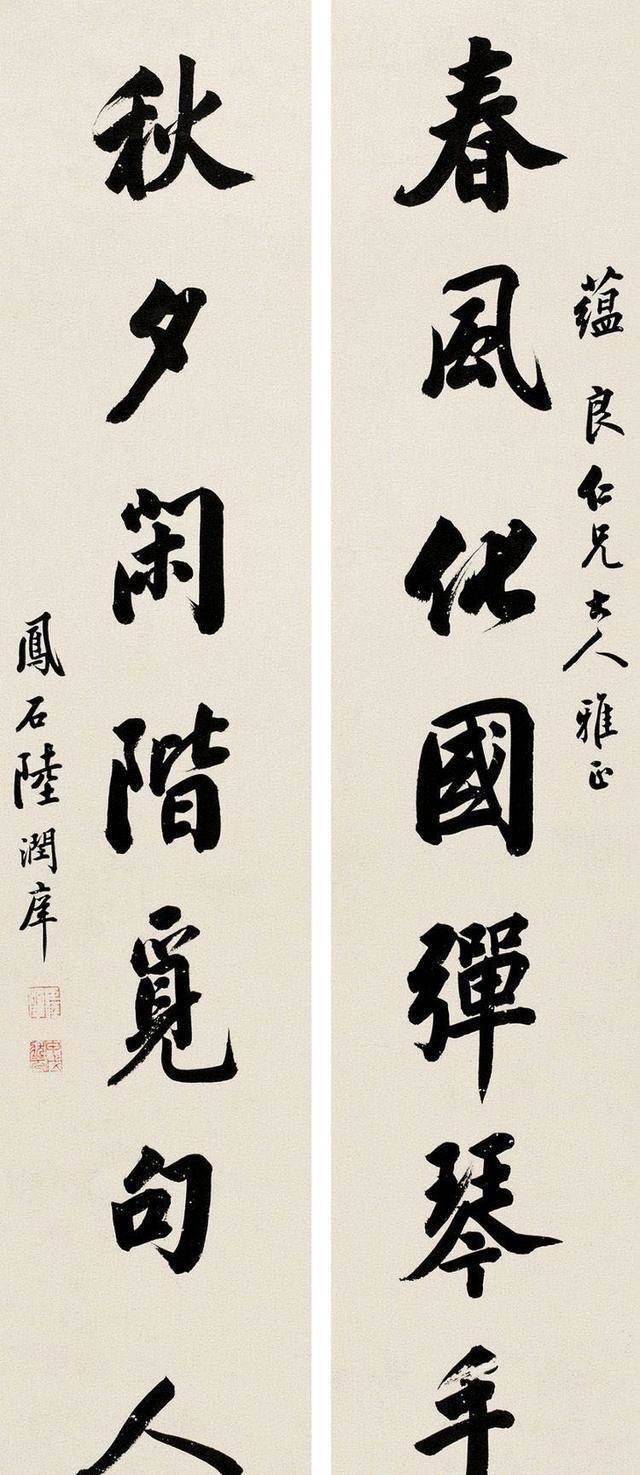 藴良仁兄大人雅正
春風化國彈琴手
秋夕閑階覓句人
鳳石陸潤庠